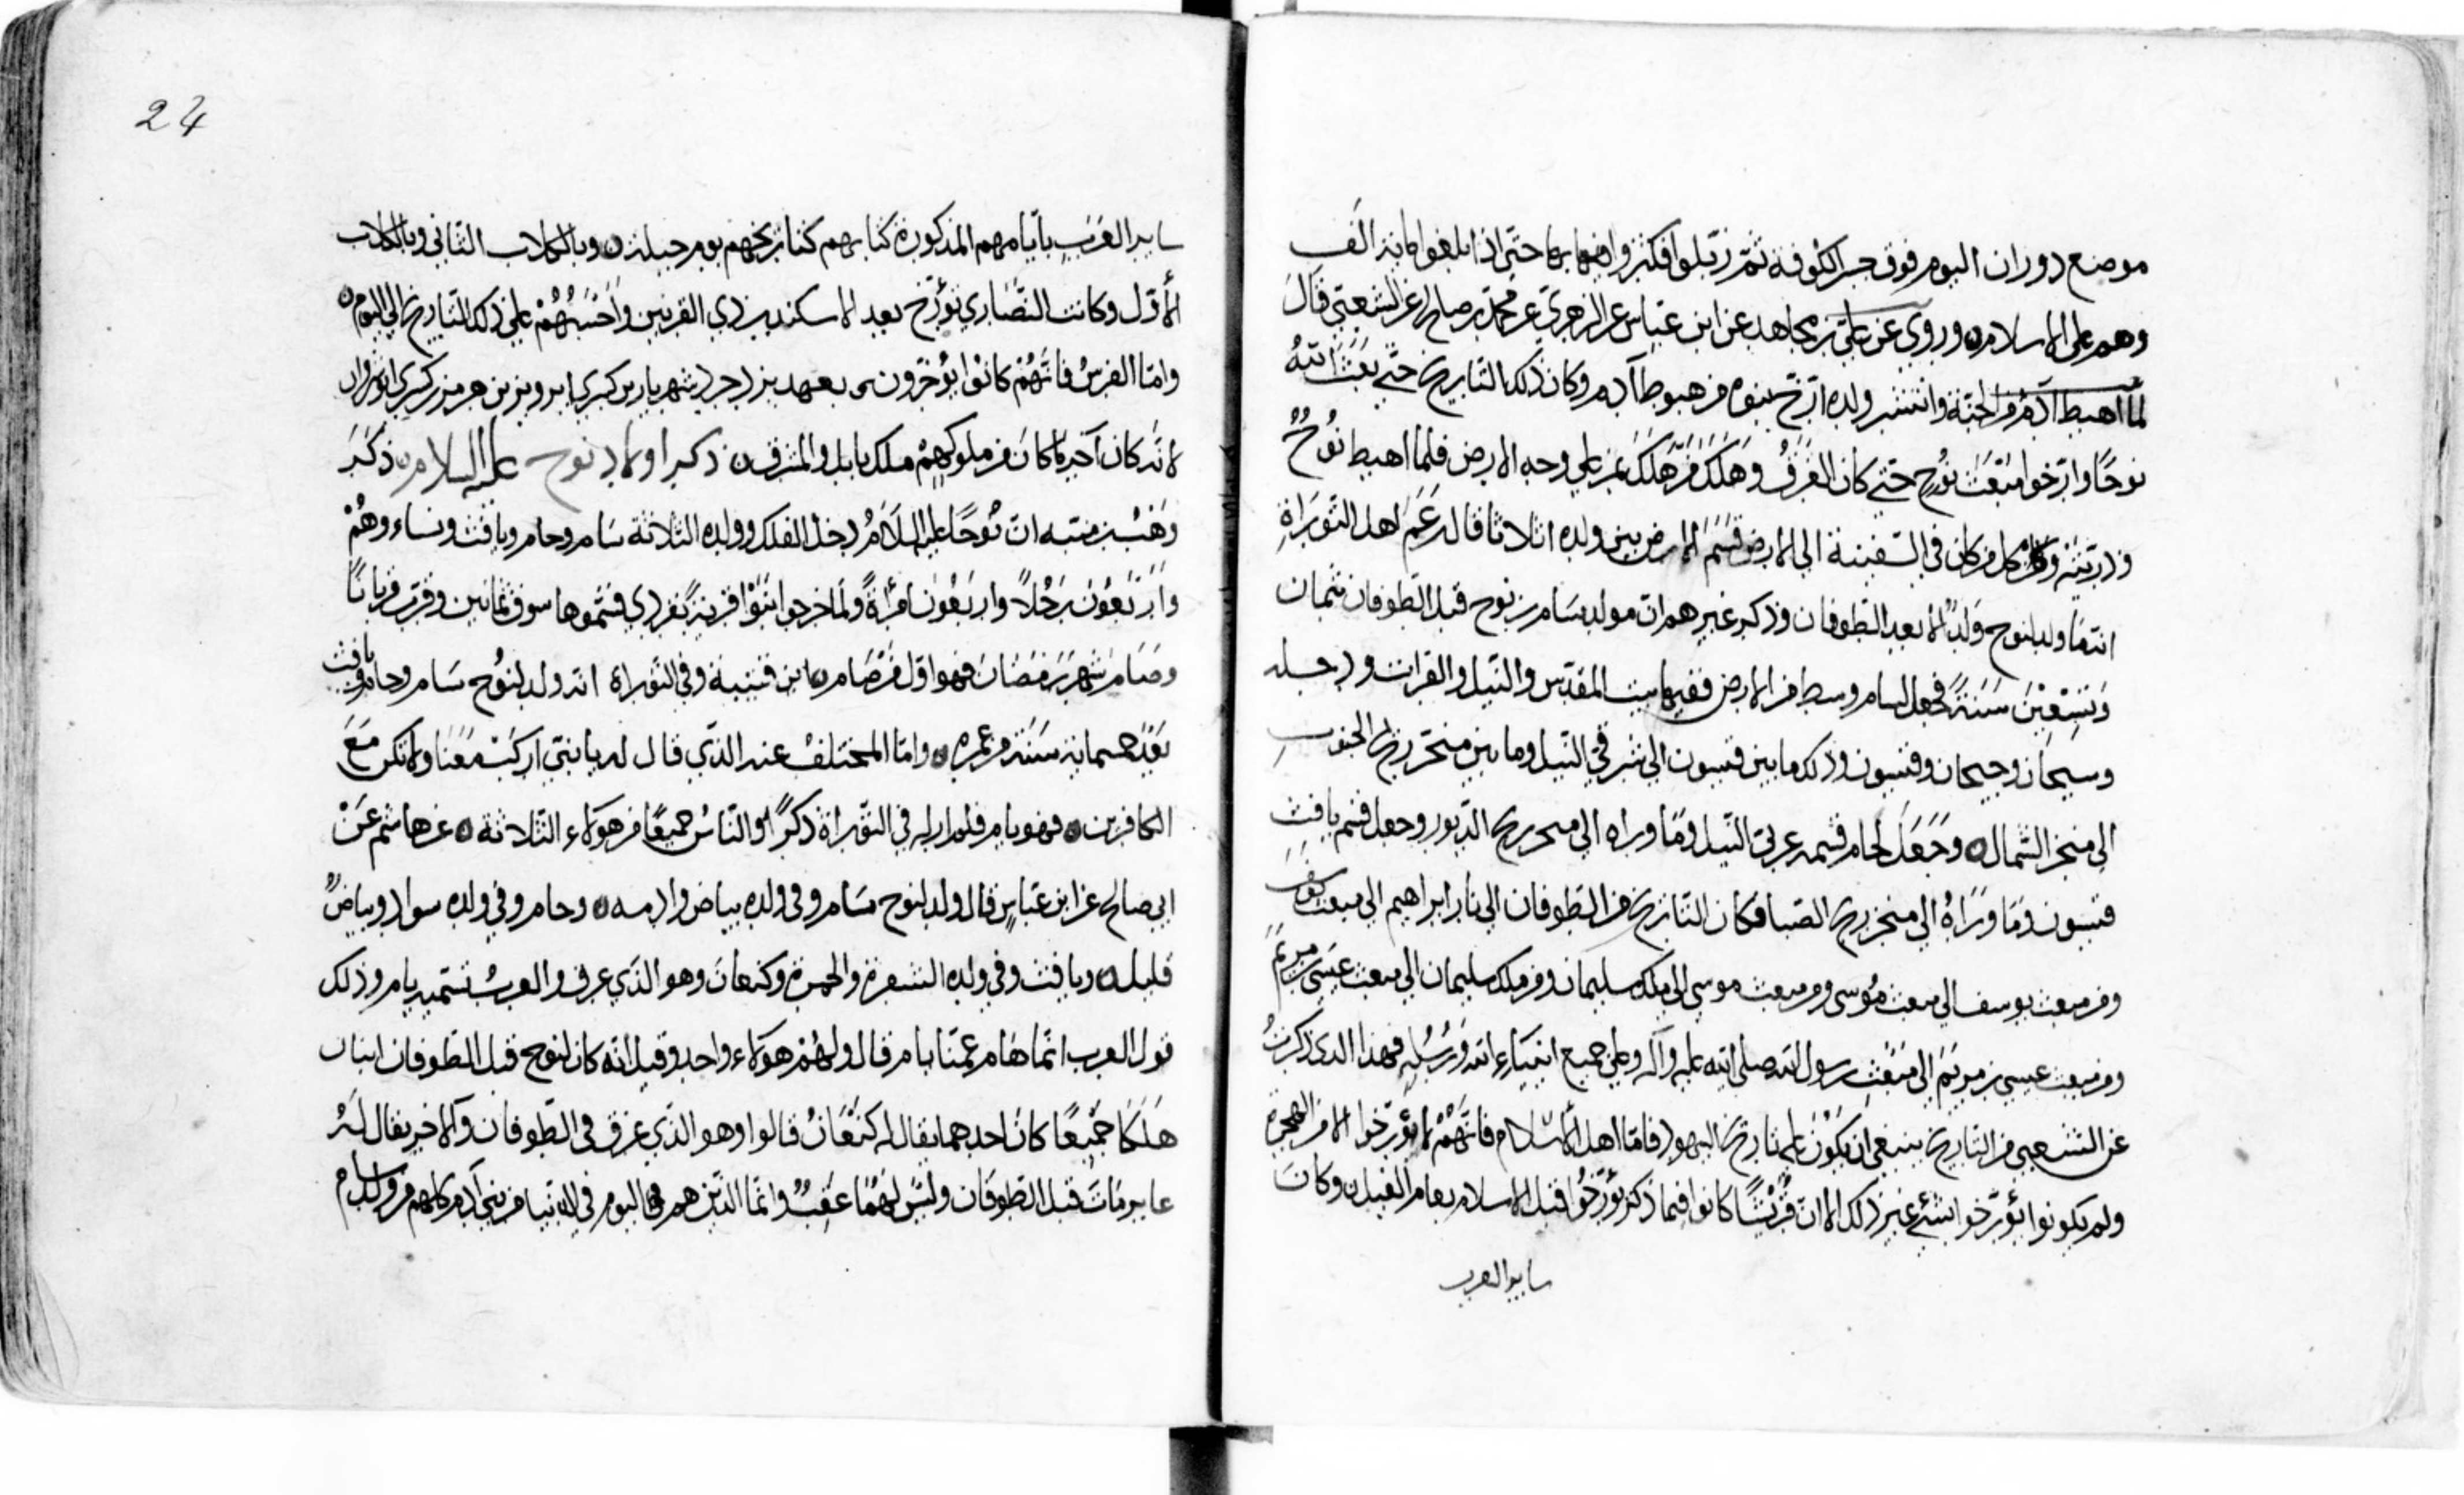 موضع دوران اليوم فوق جسر الكوفة ثم نزلوا فكثروا بها حتى اذا بلغوا مائة الف
وهم على الاسلام وروي عن علي بن مجاهد عن ابن عباس عن الزهري عن محمد بن صالح عن الشعبي قال
لما اهبط آدم من الجنة وانتشر ولده ارّخ بنوه من هبوط آدم وكان ذلك التاريخ حتى بعث الله
نوحًا وارخوا مبعث نوح حتى كان الغرق وهلك من هلك ممن على وجه الارض فلما اهبط نوح
وذريته وكل من كان في السفينة الى الارض قسم الارض بين ولده اثلاثا قال زعم اهل التوراة
انما ولد لنوح ولد الا بعد الطوفان وذكر غيرهم ان مولد سام بن نوح قبل الطوفان بثمان
وتسعين سنة فجعل لسام وسط من الارض ففيها بيت المقدس والنيل والفرات ودجله
وسيحان وجيحان وفيسون وذلك ما بين فيسون الى شرقي النيل وما بين منخر ريح الجنوب
الى منخر الشمال وجعل لحام قسمه غربي النيل وما وراه الى منخر ريح الدبور وجعل قسم يافث
فيسون وما وراه الى منخر ريح الصبا فكان التاريخ من الطوفان الى نار ابراهيم الى مبعث يوسف
ومن مبعث يوسف الى مبعث موسى ومن مبعث موسى الى ملك سليمان ومن ملك سليمان الى مبعث عيسى بن مريم
ومن مبعث عيسى بن مريم الى مبعث رسول الله صلى الله عليه وآله وعلى جميع انبياء الله ورسله فهذا الذى ذكرت
عن الشعبي من التاريخ ينبغي ان يكون على تاريخ اليهود فاما اهل الاسلام فانهم لم يؤرخوا الا من الهجرة
ولم يكونوا يؤرخوا بشئ غير ذلك الا ان قريشًا كانوا فيما ذكر يؤرخوا قبل الاسلام بعام الفيل وكان
ساير العرب
24
ساير العرب بايامهم المذكورة كتابهم كتاريخهم بيوم جبلة وبالكلاب الثاني وبالكلاب
الأول وكانت النصارى تؤرخ بعهد الاسكندر ذي القرنين وأحسبهم على ذلك التاريخ الى اليوم
واما الفرس فانهم كانوا يؤرخون بعهد يزدجرد شهريار بن كسرى ابرويز بن هرمز بن كسرى انوشروان
لانه كان آخر ما كان من ملوكهم ملك بابل والمشرق ذكر اولاد نوح عليه السلام ذكر
وهب بن منبه ان نوحًا عليه السلام دخل الفلك وولده الثلاثة سام وحام ويافث ونساء وهم
واربعون رجلًا واربعون امرأةً ولما خرجوا ابتنوا قرية بقردي فسموها سوق ثمانين وقرب قربانًا
وصام شهر رمضان فهو اول من صام ابن قتيبة وفي التوراة انه ولد لنوح سام وحام ويافث
بعد خمسمائة سنة من عمره واما المختلف عند الذي قال له يا بني اركب معنا ولا تكن مع
الكافرين فهو يام فلم ار له في التوراة ذكرًا والناس جميعًا من هؤلاء الثلاثة عن هاشم عن
ابي صالح عن ابن عباس قال ولد لنوح سام وفي ولده بياض وادمه وحام وفي ولده سواد وبياض
قليل ويافث وفي ولده الشقرة والحمرة وكنعان وهو الذي غرق والعرب تسميه يام وذلك
قول العرب انما هام عمنا يام قال ولهم هؤلاء واحد وقيل انه كان لنوح قبل الطوفان ابنان
هلكا جميعًا كان احدهما يقال له كنعان قالوا وهو الذي غرق في الطوفان والآخر يقال له
عابر مات قبل الطوفان وليس لهما عقب وانما الذين هم اليوم في الدنيا من بني آدم كلهم من ولد سام